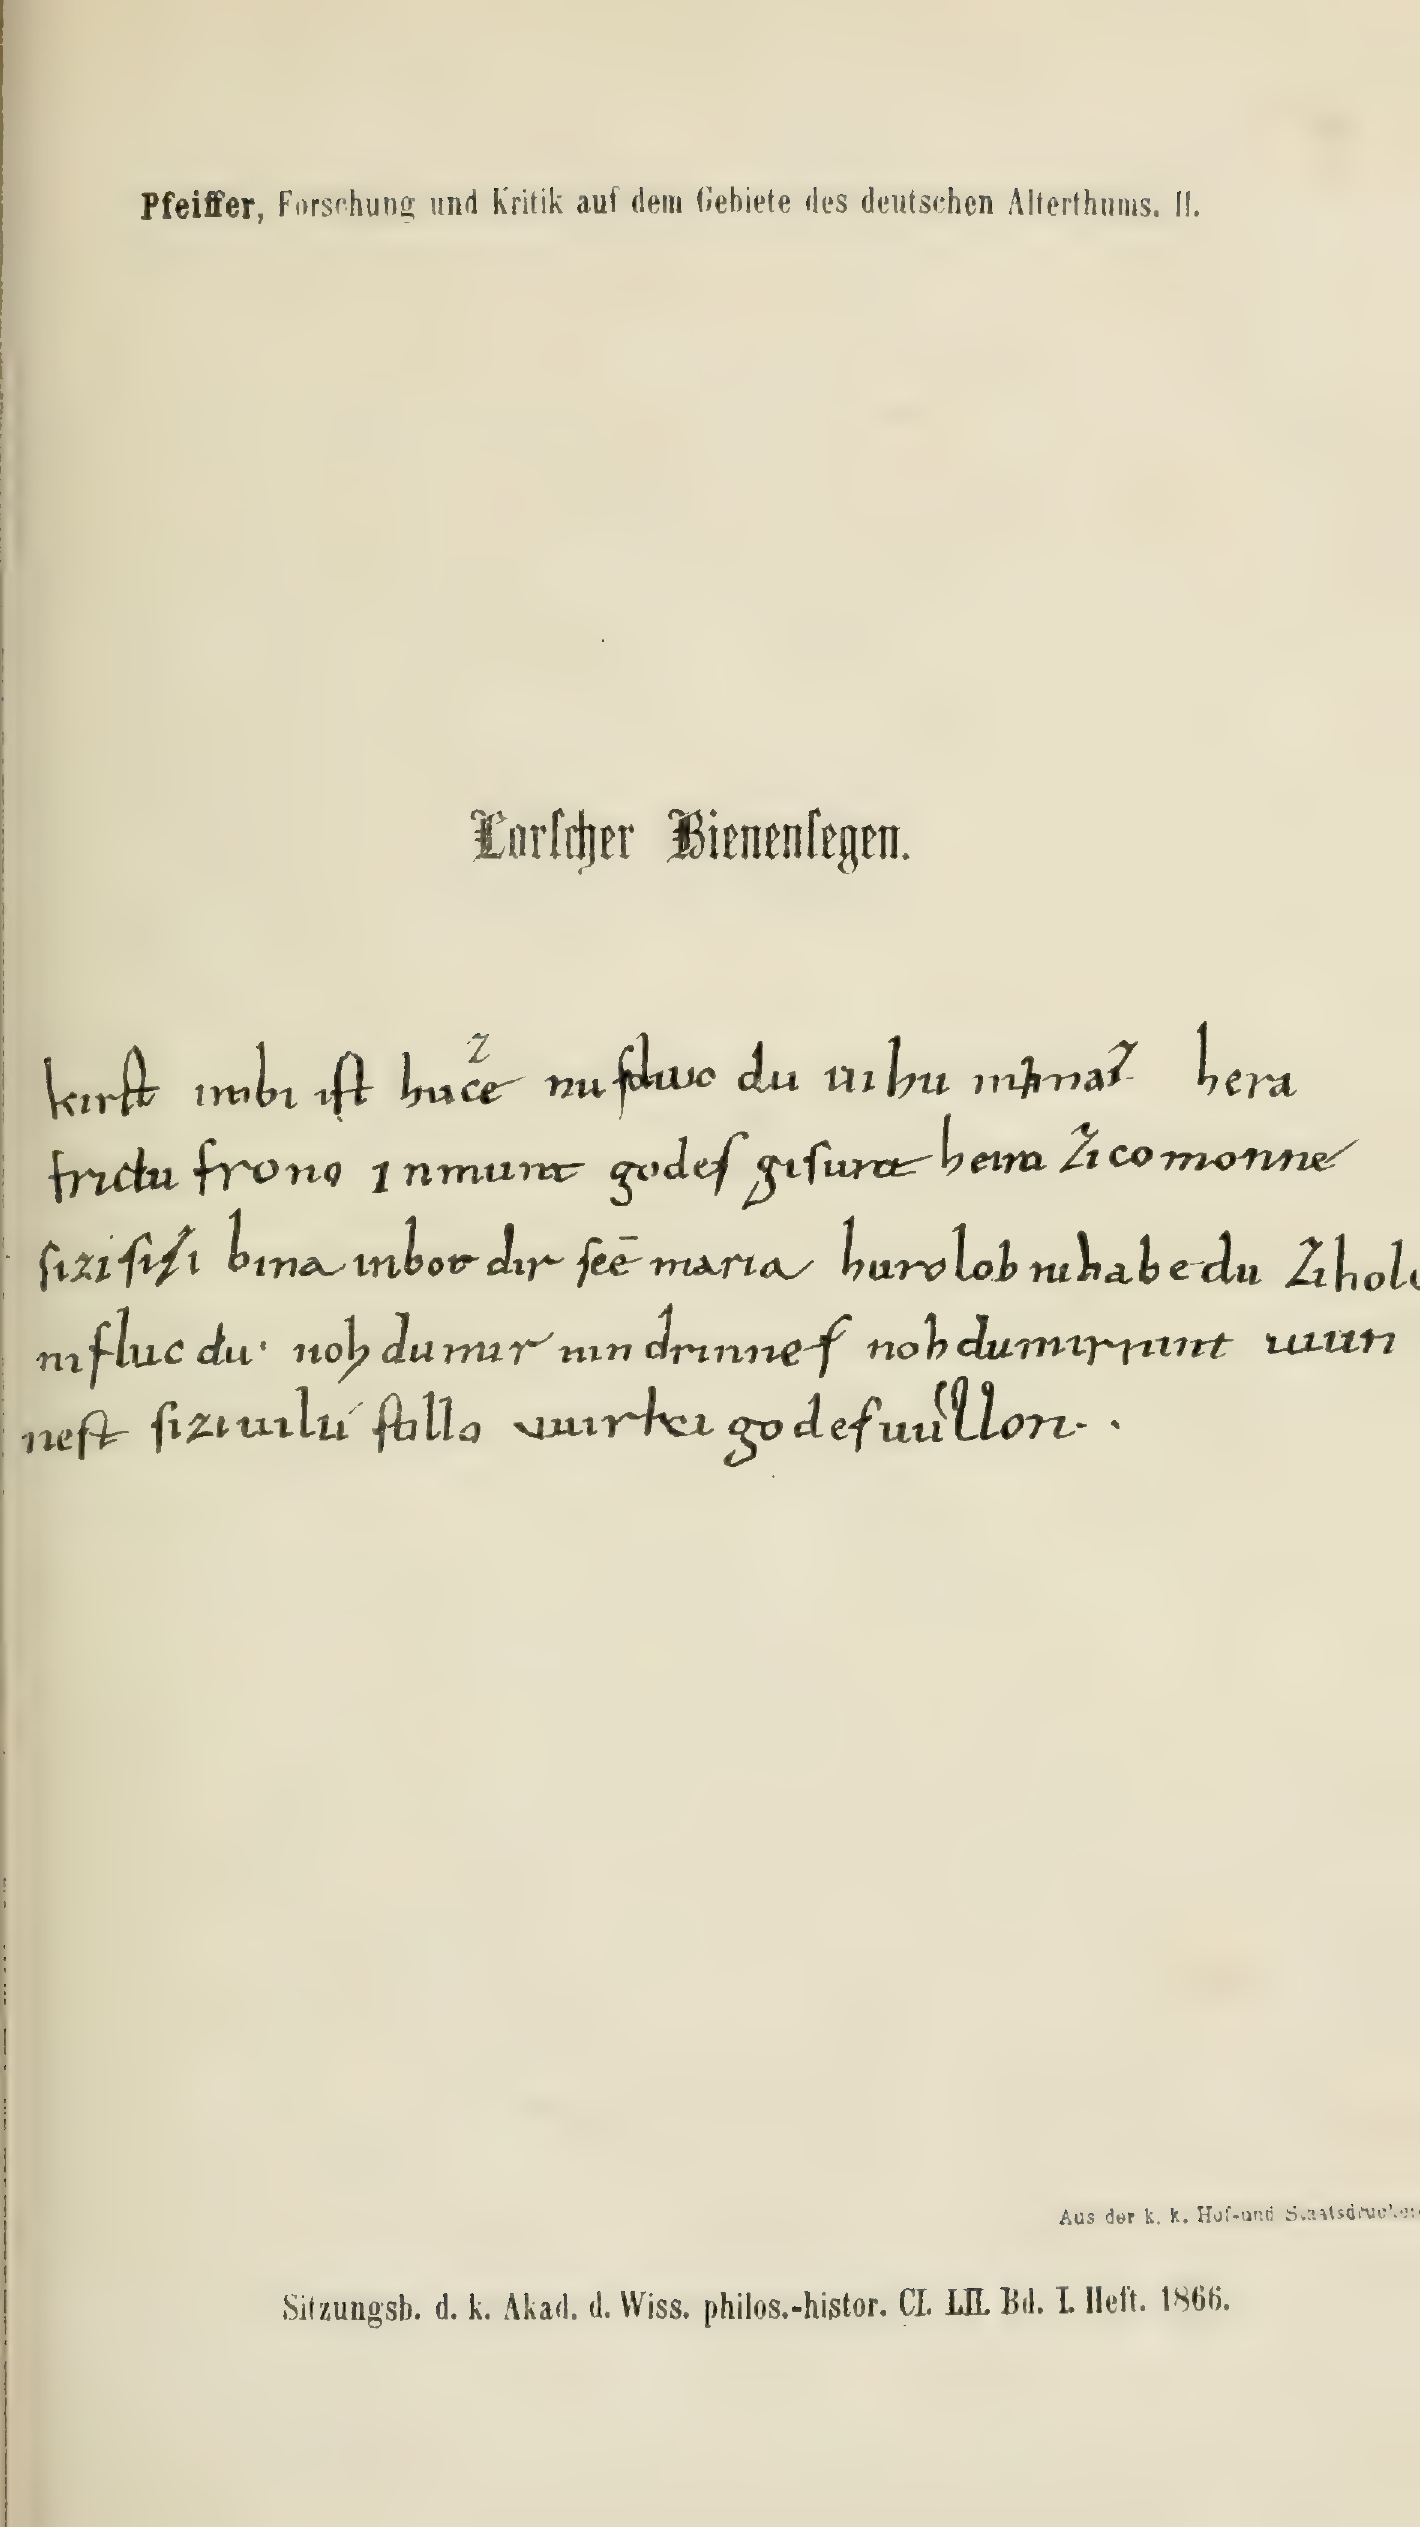 Pfeiffer, Forschung und Kritik auf dem Gebiete des deutschen Alterthums. II.
Lorſcher Bienenſegen.
kirſt imbi iſt hucze nufluic du uihu minaz hera
fridu frono inmunt godeſ giſunt heim zicomonne
ſizi ſizi bina inbot dir ſcē maria hurolob nihabe du ziholc
nifluc du· noh du mir nindrinneſ noh du mir nint uuin
neſt ſizi uilu ſtillo uuirki godeſ uuillon· ·
Aus der k. k. Hof-und Staatsdrucke
Sitzungsb. d. k. Akad. d. Wiss. philos.-histor. Cl. LII. Bd. I. Heft. 1866.